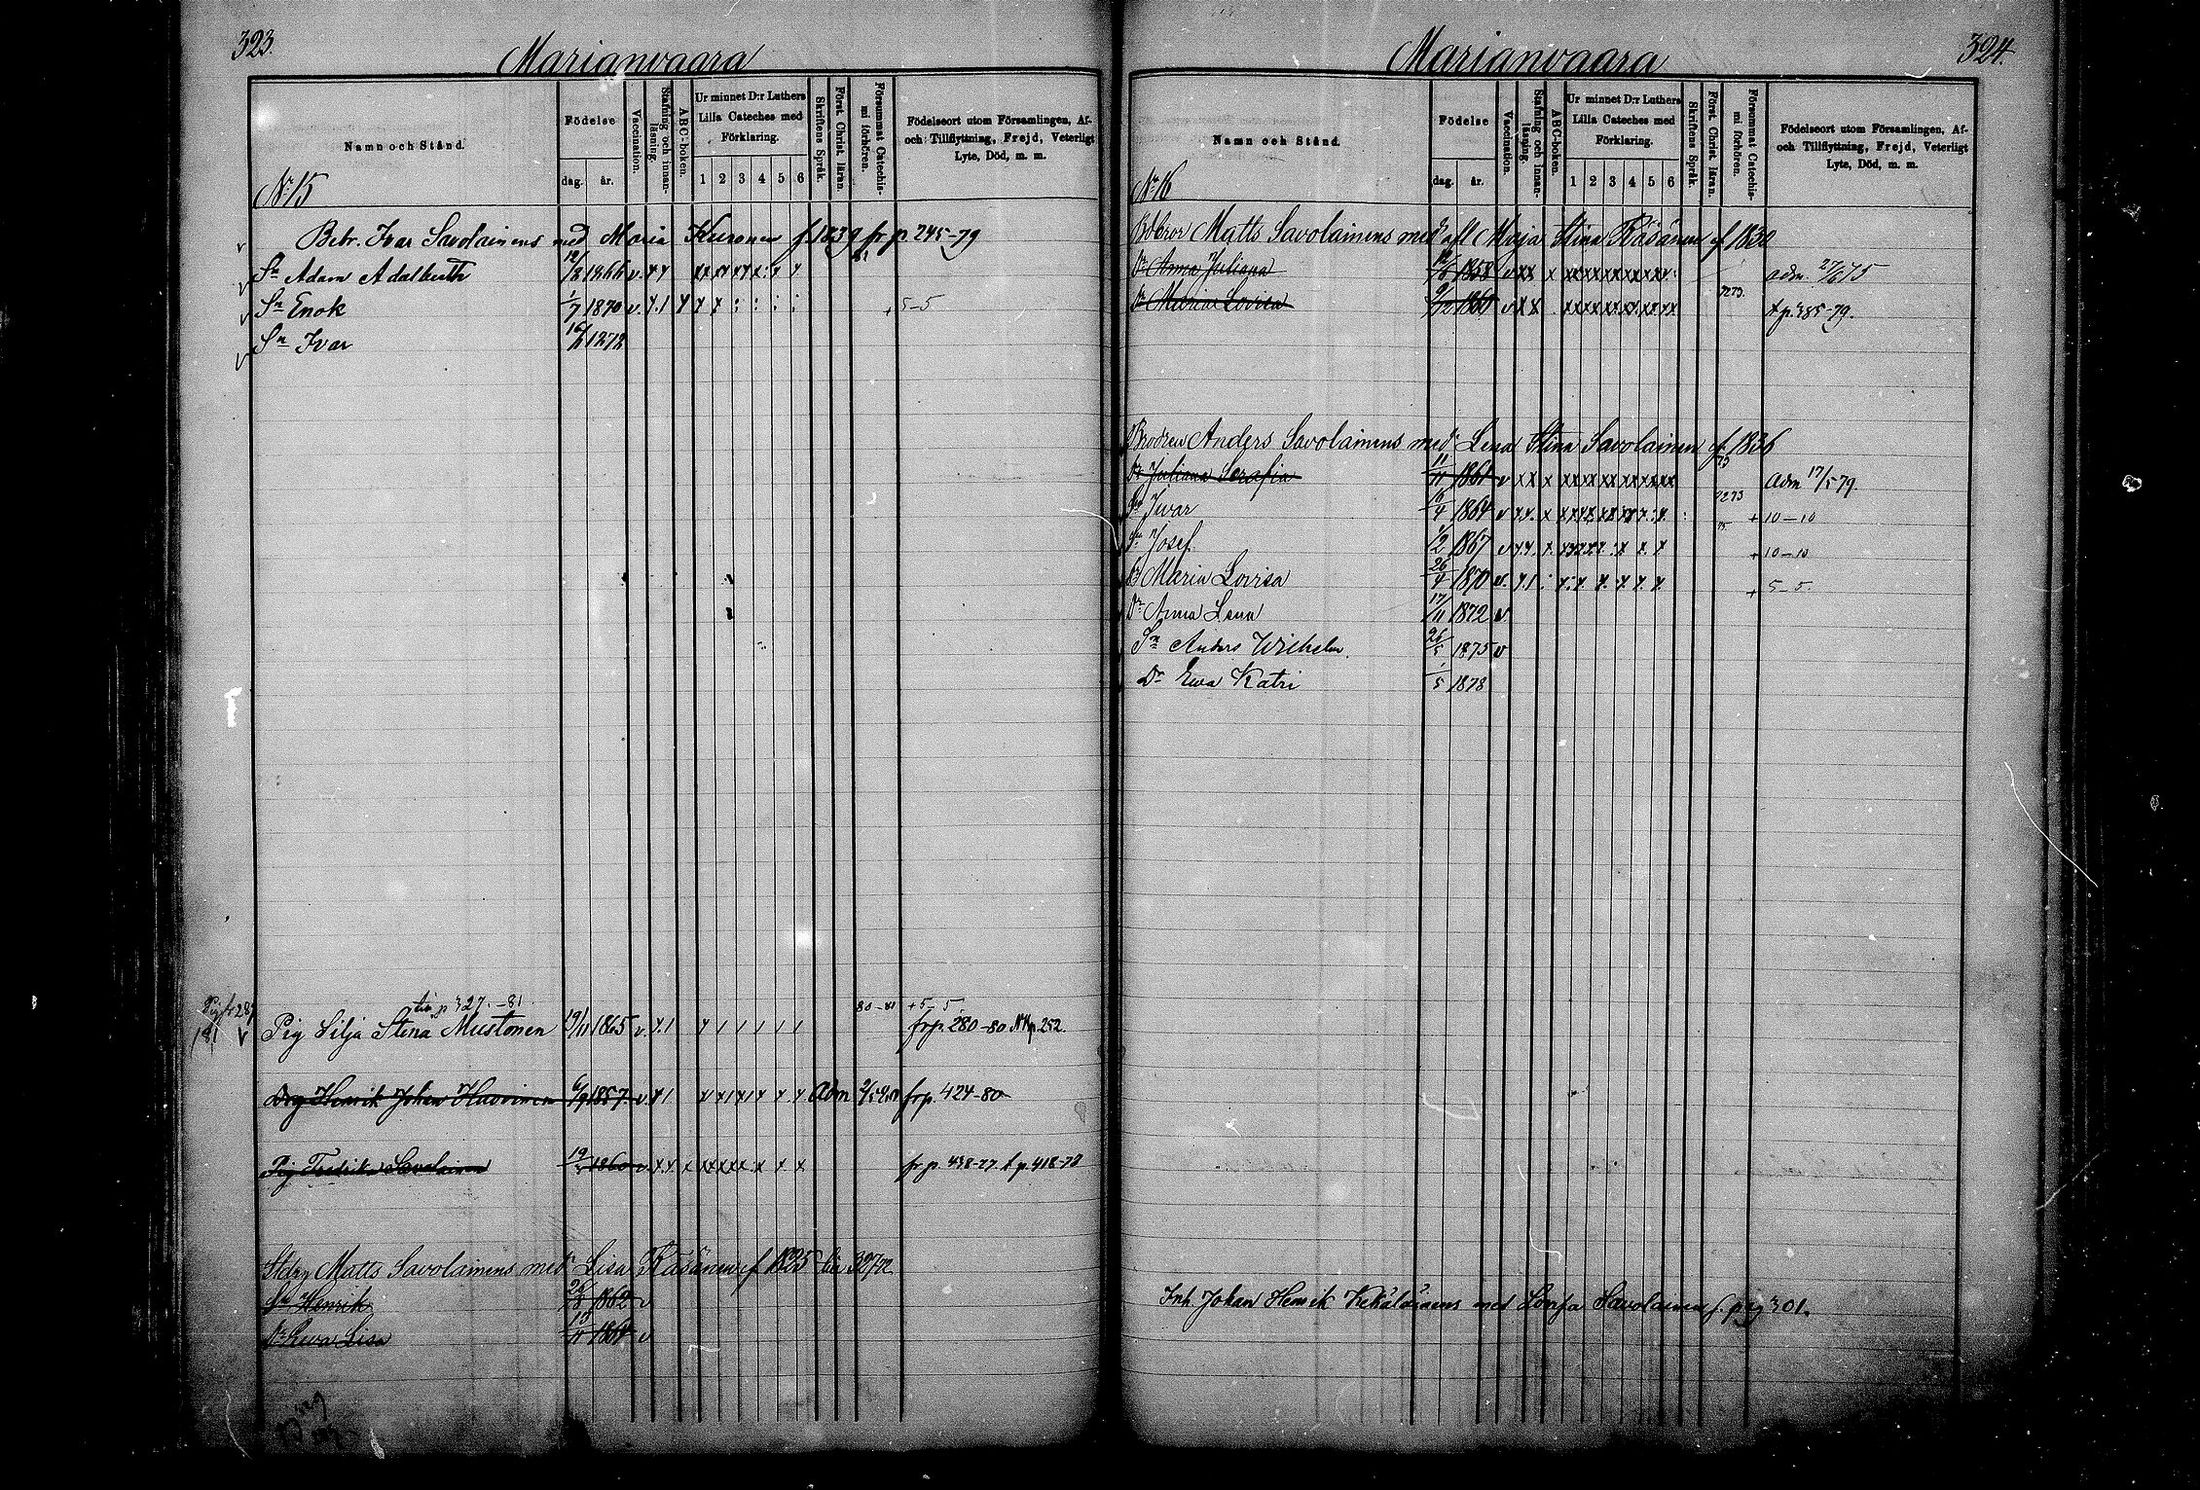 323.
Marianvaara
Namn och Stånd.
Födelse
dag. år.
Vaccination.
Stafning och innan-läsning.
ABC-boken.
Ur minnet D:r Luthers
Lilla Cateches med
Förklaring.
1 2 3 4 5 6
Skriftens Språk.
Först. Christ. läran.
Försummat Catechis-mi förhören.
Födelseort utom Församlingen, Af-
och Tillflyttning, Frejd, Veterligt
Lyte, Död, m. m.
No 15
Ivar Savolainens med Maria Kuronen f. 1839 fr p. 245-79
Sn Adam Adalbert 12/2 1866 v
Sn Enok 1/7 1870 v + 5-5
Sn Ivar
p 327.-81 80-81 +5-5
Pig Silja Stina Mustonen 19/11 1865 v frp. 280-80 p. 252
Drg Henrik Johan 6/9 1857 v Adm frp. 424-80
Pig Fredrika Savolainen 1860 v fr p. 438-77. t p. 418-78
Matts Savolainens med Lisa Räsänen f 1825
Sn Henrik 26/8 1862 v
Dr Ewa Lisa 1864 v
324.
Marianvaara
Namn och Stånd.
Födelse
dag. år.
Vaccination.
Stafning och innan-läsning.
ABC-boken.
Ur minnet D:r Luthers
Lilla Cateches med
Förklaring.
1 2 3 4 5 6
Skriftens Språk.
Först. Christ. läran.
Försummat Catechis-mi förhören.
Födelseort utom Församlingen, Af-
och Tillflyttning, Frejd, Veterligt
Lyte, Död, m. m.
No 16
Matts Savolainens med Maja Stina Räsänen f 1830
Dr Anna Juliana 1858 v adm. 27/6 75
Dr Maria Lovisa 1860 v 7273. t p. 385-79.
Brodren Anders Savolainens med Lena Stina Savolainen f 1836
Dr Juliana Serafia 11/11 1861 v Adm 17/5 79.
Sn Ivar 16/4 1864 v 7273 + 10-10
Sn Josef 1867 v + 10-10
Dr Maria Lovisa 26/4 1870 v + 5-5.
Dr Anna Lena 17/11 1872 v
Sn Anders Wilhelm 26/5 1875 v
Dr Ewa Katri 1/5 1878
Inh. Johan Henrik Kekäläinens med Savolainen f. pag 301.